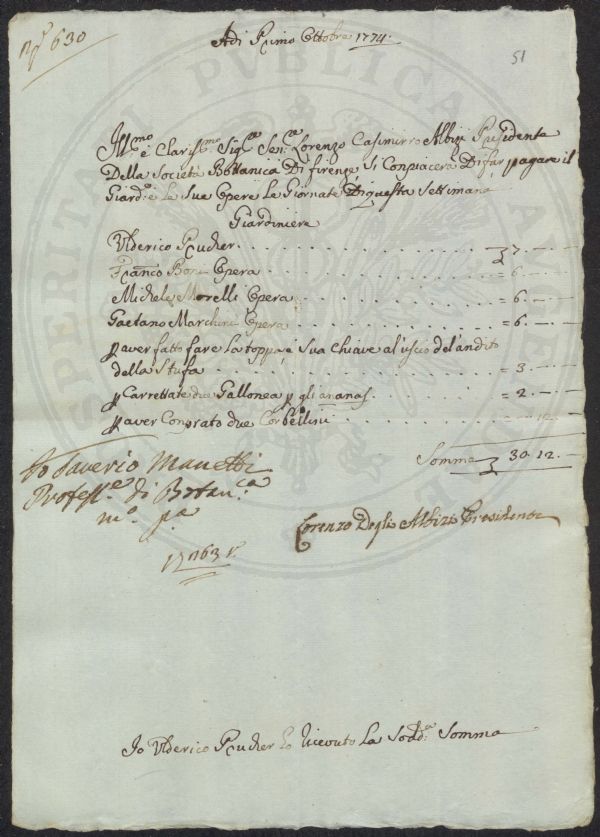 N° 630
Adi Primo Ottobre 1774.
51
Ill.mo e Claris.mo Sig.re Sen.re Lorenzo Casimirro Albizi Presidente
Della Società Bottanica Di firenze, Si Conpiacerà Di far pagare il
Giard.e e Le Sue Opere Le Giornate Di questa Settimana
Giardiniere
Ulderico Prucher = 7. —
Franco Boni Opera = 6. —
Michele Morelli Opera = 6. —
Gaetano Marchini Opera = 6. —
p aver fatto fare La toppa, e Sua Chiave al uscio del'andito
della Stufa = 3. —
p Carrettate due Gallonea p gli ananas = 2. —
p aver Conprato due Corbellini 12. —
Somma 30. 12. —
Io Saverio Manetti
Profess.e di Botan.ca
m.o p.a
Lorenzo Degli Albizi Presidente
631
Io Ulderico Prucher ho Ricevuto La Sodd.a Somma
PROSPERITATI PVBLICAE AVGENDAE